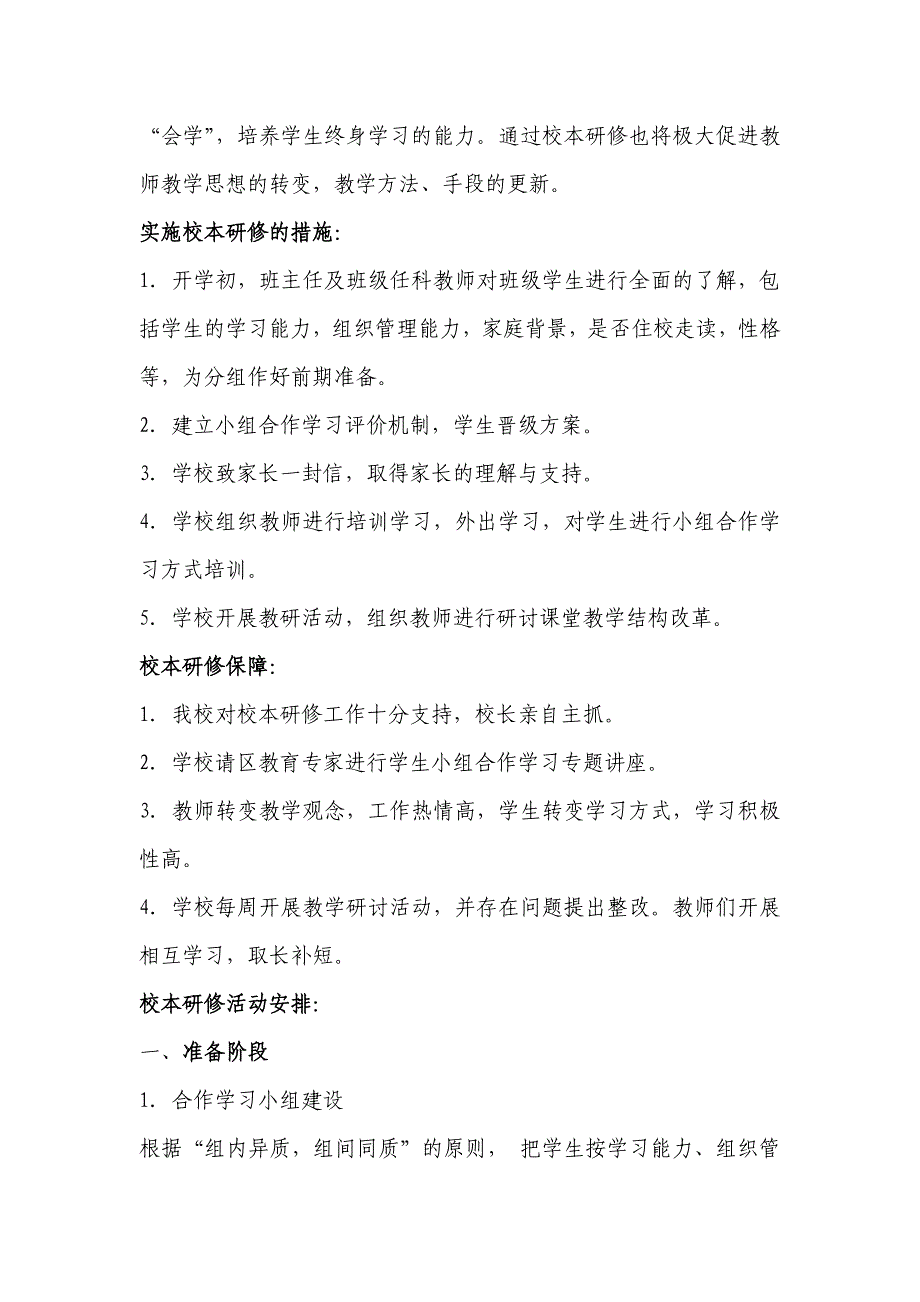 “会学”，培养学生终身学习的能力。通过校本研修也将极大促进教
师教学思想的转变，教学方法、手段的更新。
实施校本研修的措施：
1．开学初，班主任及班级任科教师对班级学生进行全面的了解，包
括学生的学习能力，组织管理能力，家庭背景，是否住校走读，性格
等，为分组作好前期准备。
2．建立小组合作学习评价机制，学生晋级方案。
3．学校致家长一封信，取得家长的理解与支持。
4．学校组织教师进行培训学习，外出学习，对学生进行小组合作学
习方式培训。
5．学校开展教研活动，组织教师进行研讨课堂教学结构改革。
校本研修保障：
1．我校对校本研修工作十分支持，校长亲自主抓。
2．学校请区教育专家进行学生小组合作学习专题讲座。
3．教师转变教学观念，工作热情高，学生转变学习方式，学习积极
性高。
4．学校每周开展教学研讨活动，并存在问题提出整改。教师们开展
相互学习，取长补短。
校本研修活动安排：
一、准备阶段
1．合作学习小组建设
根据“组内异质，组间同质”的原则， 把学生按学习能力、组织管